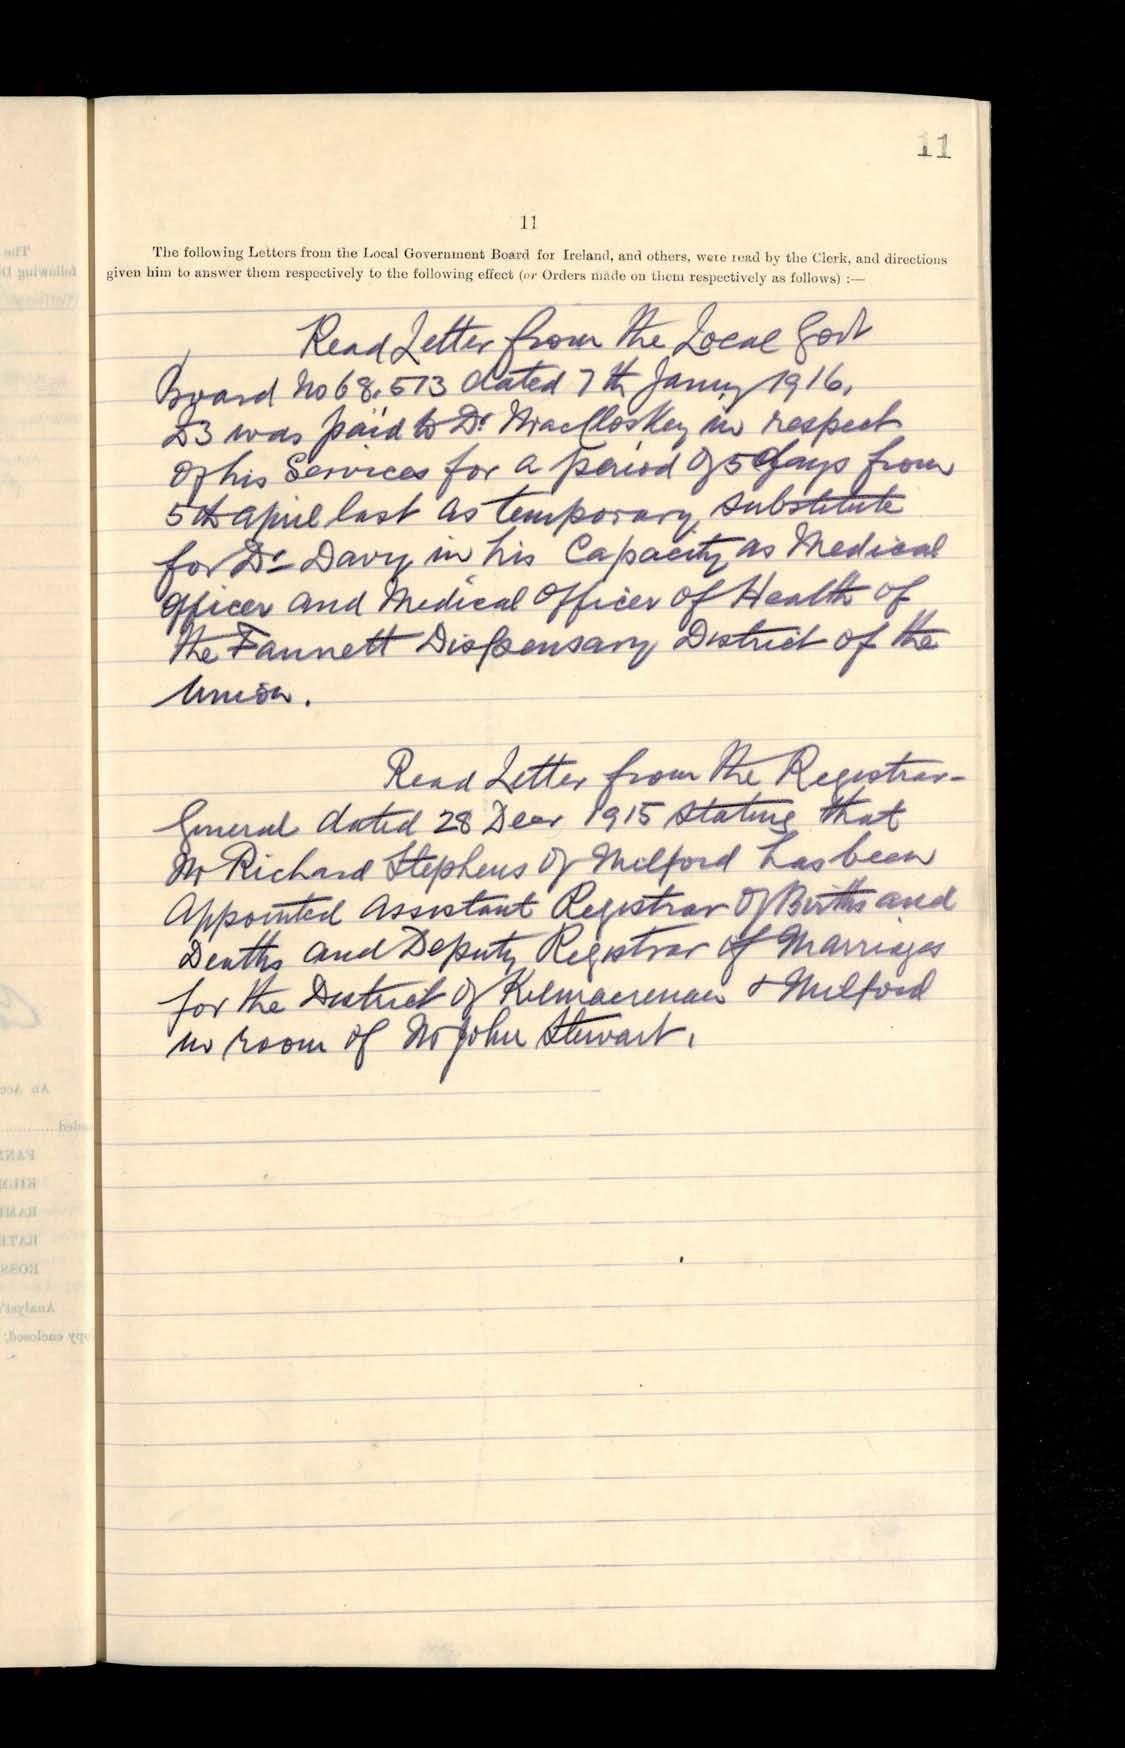 11
11
The following Letters from the Local Government Board for Ireland, and others, were read by the Clerk, and directions
given him to answer them respectively to the following effect (or Orders made on them respectively as follows) :—
Read Letter from the Local Govt
Board No 68.573 dated 7th Janry 1916.
£3 was paid to Dr MacCloskey in respect
of his Services for a period of 5 days from
5th April last as temporary substitute
for Dr Davy in his Capacity as Medical
Officer and Medical Officer of Health of
the Fannett Dispensary District of the
Union.
Read Letter from the Registrar-
General dated 28 Decr 1915 stating that
Mr Richard Stephens of Milford has been
Appointed Assistant Registrar of Births and
Deaths and Deputy Registrar of Marriages
for the District of Kilmacrenan & Milford
in room of Mr John Stewart.
The
following D
An Acc
ded
FANN
KILM
RAM
RATH
ROSS
Analyst'
py enclosed,